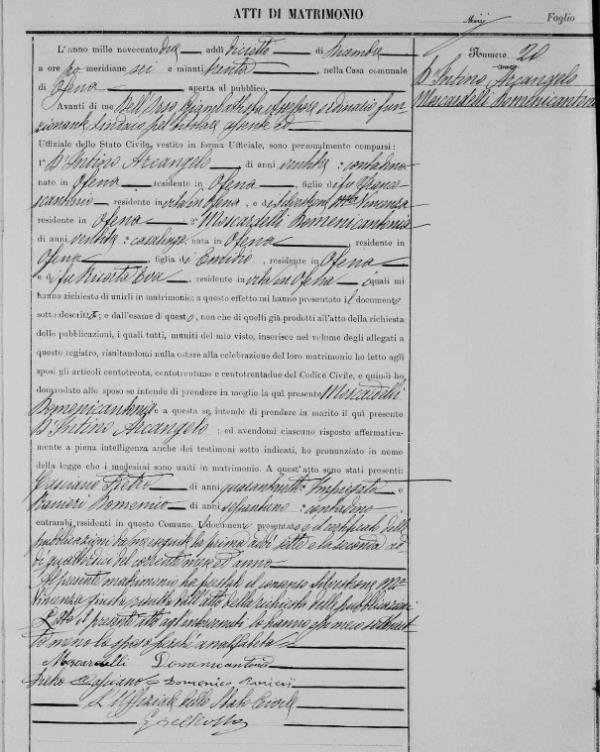 ATTI DI MATRIMONIO
Foglio
Numero 20
D'Intino Arcangelo
Moscardelli Domenicantonia
L'anno mille novecento due, addì diciotto di
a ore pomeridiane sei e minuti trenta, nella Casa comunale
di Ofena aperta al pubblico,
Avanti di me Dell'Orso
zionante Sindaco per assente ed
Uffiziale dello Stato Civile, vestito in forma Ufficiale, sono personalmente comparsi:
1° D'Intino Arcangelo di anni : contadino
nato in Ofena residente in Ofena, figlio di fu
cantonio residente in vita in Ofena e di Silvestrone Ma Vincenza
residente in Ofena 2° Moscardelli Domenicantonia
di anni : casalinga nata in Ofena, residente in
Ofena, figlia di Emidio, residente in Ofena
e di fu Eva, residente in vita in Ofena, i quali mi
hanno richiesto di unirli in matrimonio; a questo effetto mi hanno presentato il documento
sotto descritto; e dall'esame di questo, non che di quelli già prodotti all'atto della richiesta
delle pubblicazioni, i quali tutti, muniti del mio visto, inserisco nel volume degli allegati a
questo registro, risultandomi nulla ostare alla celebrazione del loro matrimonio ho letto agli
sposi gli articoli centotrenta, centotrentuno e centotrentadue del Codice Civile, e quindi ho
domandato allo sposo se intende di prendere in moglie la quì presente Moscardelli
Domenicantonia e a questa se intende di prendere in marito il quì presente
D'Intino Arcangelo; ed avendomi ciascuno risposto affermativa-
mente a piena intelligenza anche dei testimoni sotto indicati, ho pronunziato in nome
della legge che i medesimi sono uniti in matrimonio. A quest'atto sono stati presenti:
Pietro di anni quarantotto Impiegato e
Ranieri Domenico di anni sessantuno: contadino,
entrambi residenti in questo Comune. I documenti presentati è il certificato delle
pubblicazioni da me eseguite la prima addì sette e la seconda ad
di quattordici del corrente mese ed anno
Al presente matrimonio ha prestato il consenso Silvestrone Ma
Vincenza giusta risulta dall'atto della richiesta delle pubblicazioni
Letto il presente atto agli intervenuti lo hanno con me sottoscrit-
to meno lo sposo perché analfabeta
Moscardelli Domenicantonia
Pietro Domenico Ranieri
L'Uffiziale dello Stato Civile